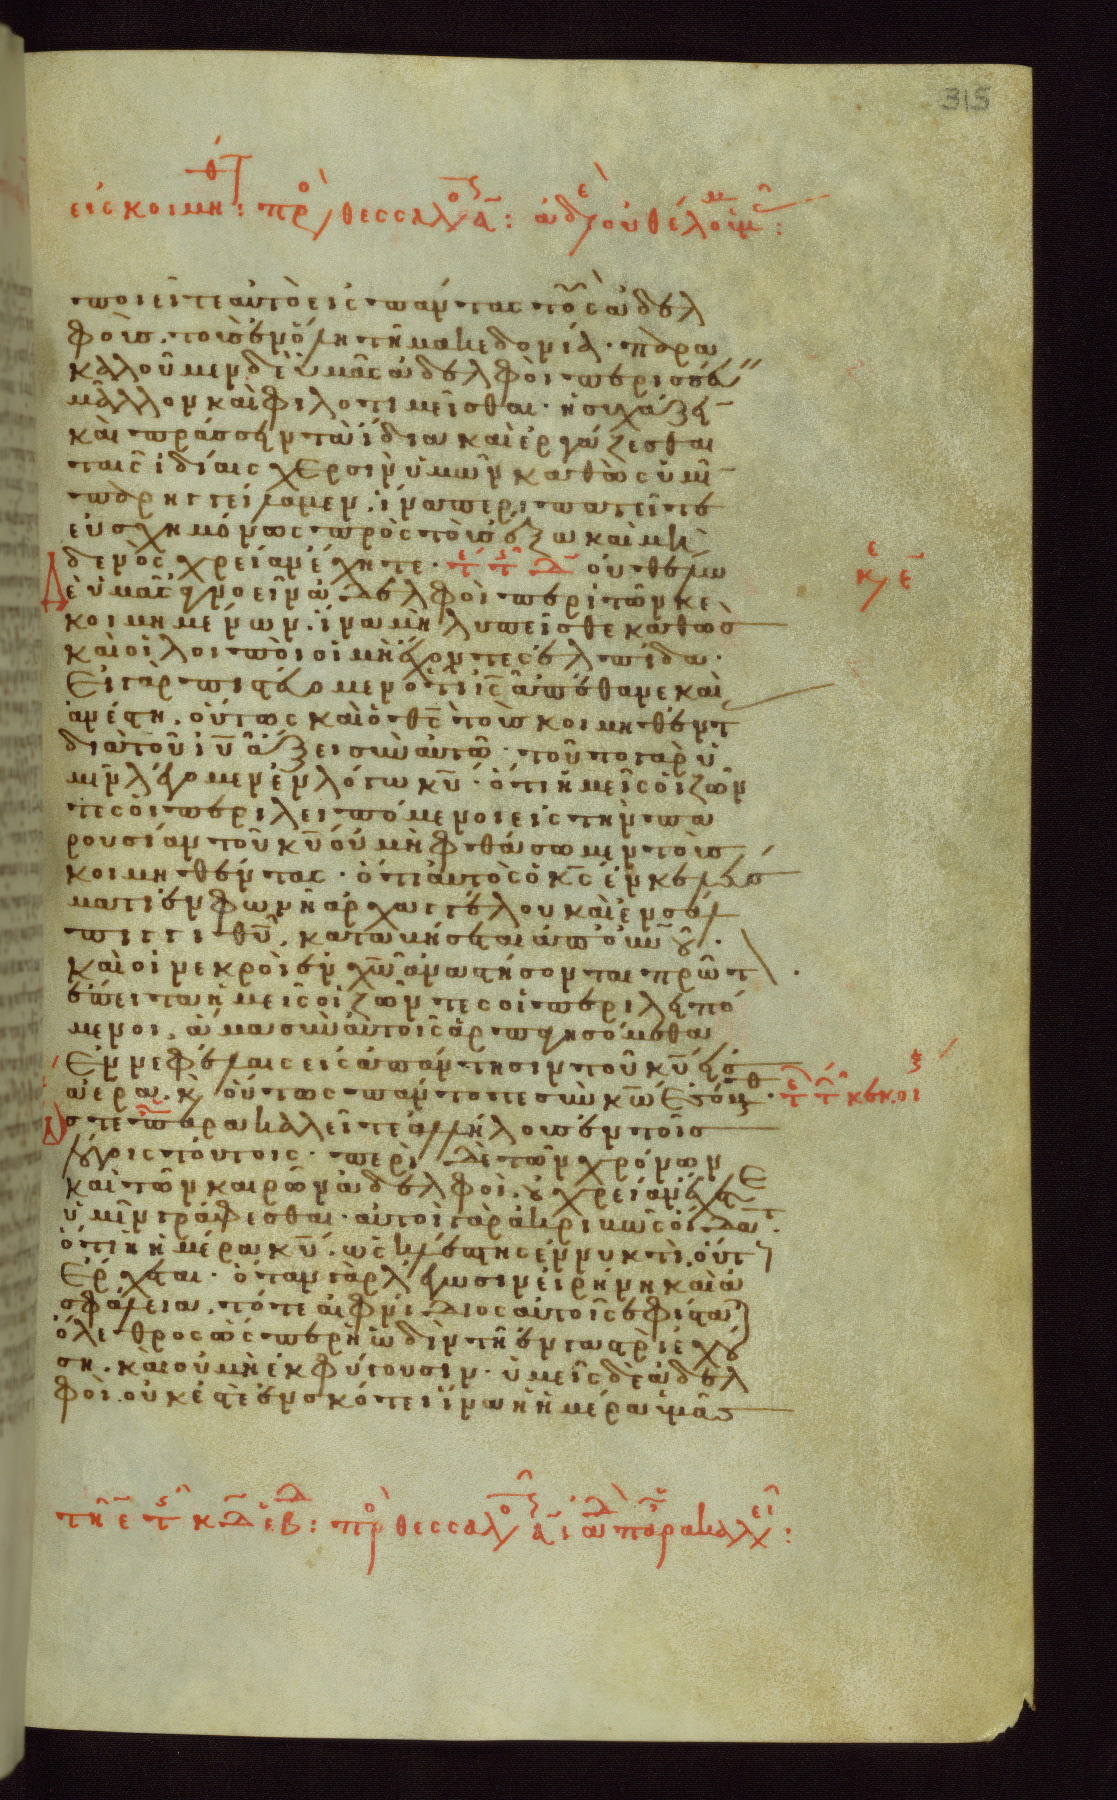 315
εἰς κοιμηθ: πρ θεσσαλ α: ἀδε οὐ θέλομ:
ποιεῖτε αὐτὸ εἰς πάντας τοὺς ἀδελ
φοὺς τοὺς ἐν ὅλη τῆ μακεδονία· παρα
καλοῦμεν δὲ ὑμᾶς ἀδελφοὶ περισσεύ
μᾶλλον καὶ φιλοτιμεῖσθαι· ἡσυχάζειν
καὶ πράσσειν τὰ ἴδια καὶ ἐργάζεσθαι
ταῖς ἰδίαις χερσὶν ὑμῶν καθὼς ὑμῖν
παρηγγείλαμεν. ἵνα περιπατεῖτε
εὐσχημόνως πρὸς τοὺς ἔξω καὶ μη
δενὸς χρείαν ἔχητε· οὐ θέλω
δὲ ὑμᾶς ἀγνοεῖν ἀδελφοὶ περὶ τῶν κε
κοιμημένων. ἵνα μὴ λυπεῖσθε καθὼς
καὶ οἱ λοιποὶ οἱ μὴ ἔχοντες ἐλπίδα·
Εἰ γὰρ πιστεύομεν ὅτι ις ἀπέθανε καὶ
ἀνέστη. οὕτως καὶ ὁ θς τοὺς κοιμηθέντ
διὰ τοῦ ιυ ἄξει σὺν αὐτῶ· τοῦτο γὰρ ὑ
μῖν λέγομεν ἐν λόγω κυ· ὅτι ἡμεῖς οἱ ζῶν
τες οἱ περιλειπόμενοι εἰς τὴν πα
ρουσίαν τοῦ κυ οὐ μὴ φθάσωμεν τοὺς
κοιμηθέντας· ὅτι αὐτὸς ὁ κς ἐν κελεύς
ματι ἐν φωνῆ ἀρχαγγέλου καὶ ἐν σάλ
πιγγι θυ. καταβήσεται ἀπ' οὐνου·
καὶ οἱ νεκροὶ ἐν χω ἀναστήσονται πρῶτ
ἔπειτα ἡμεῖς οἱ ζῶντες οἱ περιλειπό
μενοι. ἅμα σὺν αὐτοῖς ἁρπαγησόμεθα
Ἐν νεφέλαις εἰς ἀπάντησιν τοῦ κυ εἰς
ἀέρα. κ οὕτως πάντοτε σὺν κω ἐσόμεθ·
ὥστε παρακαλεῖτε ἀλλήλους ἐν τοῖς
λόγοις τούτοις· περὶ δὲ τῶν χρόνων
καὶ τῶν καιρῶν ἀδελφοί. οὐ χρείαν ἔχετε
ὑμῖν γράφεσθαι· αὐτοὶ γὰρ ἀκριβῶς οἴδατ
ὅτι ἡ ἡμέρα κυ. ὡς κλέπτης ἐν νυκτὶ. οὕτ
Ἔρχεται· ὅταν γὰρ λέγωσιν εἰρήνη καὶ ἀ
σφάλεια. τότε αἰφνίδιος αὐτοῖς ἐφίστατ
ὄλεθρος ὡς περ ἡ ὠδὶν τῆ ἐν γαστρὶ ἐχού
ση. καὶ οὐ μὴ ἐκφύγουσιν· ὑμεῖς δὲ ἀδελ
φοὶ. οὐκ ἐστὲ ἐν σκότει ἵνα ἡ ἡμέρα ὑμᾶς
τῆ ε τ κδ εβ: πρ θεσσαλ α: ἀδ παρακαλει: